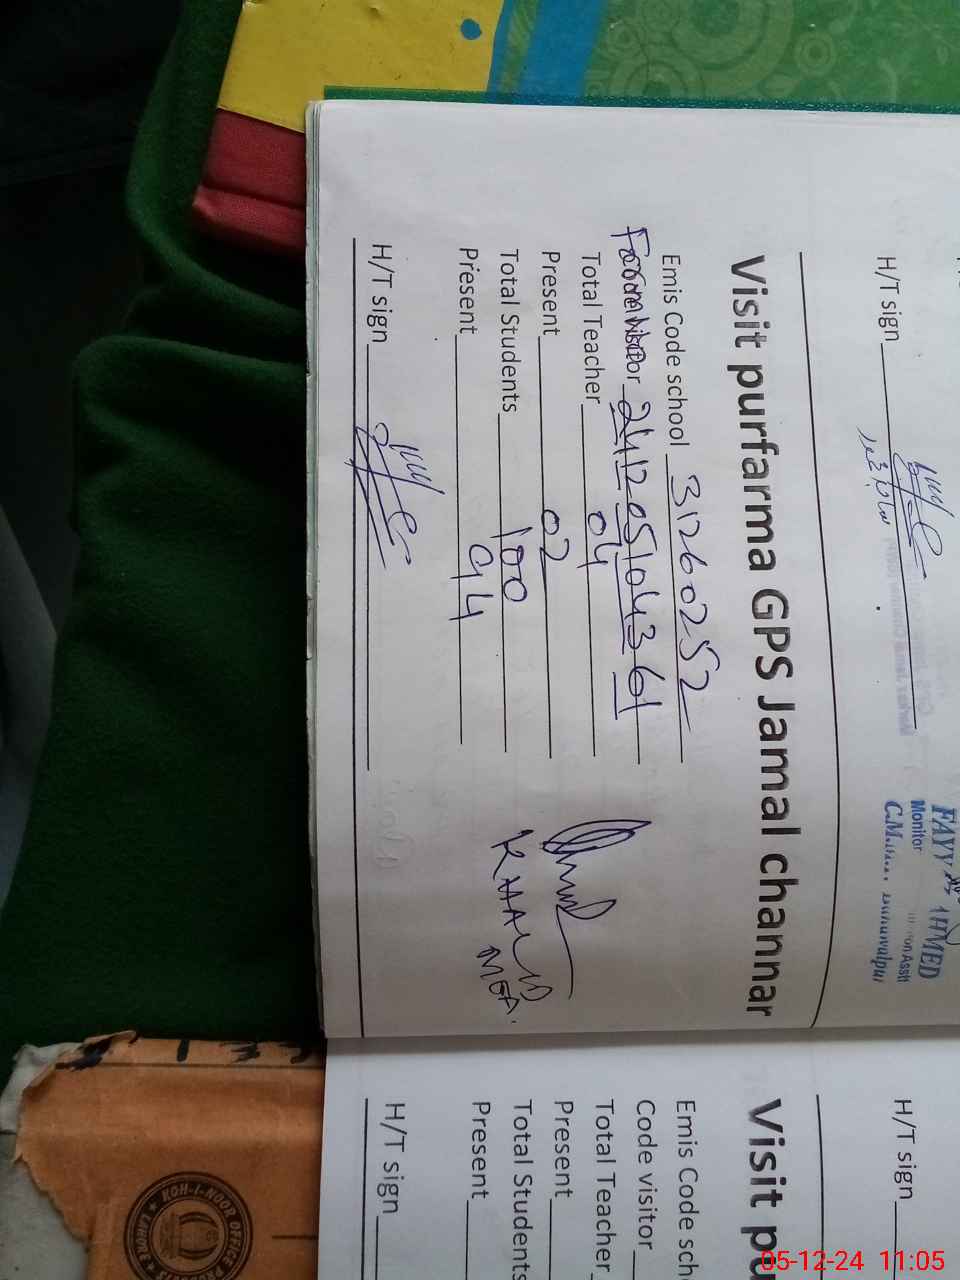 H/T sign
FAYYAZ AHMED
Monitor
Visit purfarma GPS Jamal channar
Emis Code school 31260252
Form No 241205104361
Total Teacher 04
Present 02
Total Students 100
Present 94
H/T sign
KHALID
MEA.
H/T sign
Visit pu
Emis Code sch
Code visitor
Total Teacher
Present
Total Students
Present
H/T sign
KOH-I-NOOR OFFICE
LAHORE
05-12-24 11:05